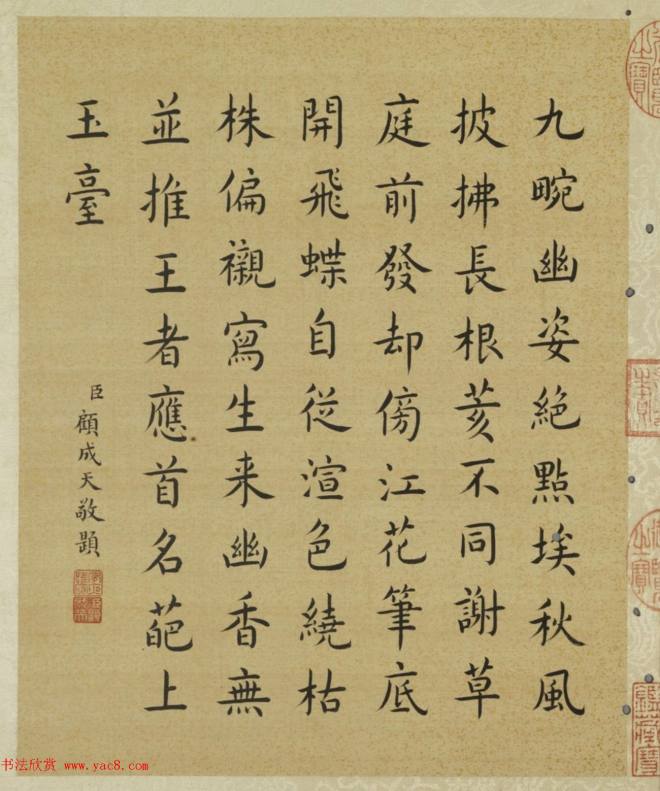 九畹幽姿絶點埃秋風
披拂長根荄不同謝草
庭前發却傍江花筆底
開飛蝶自從渲色繞枯
株偏襯寫生来幽香無
並推王者應首名葩上
玉臺
臣顧成天敬題
书法欣赏 www.yac8.com